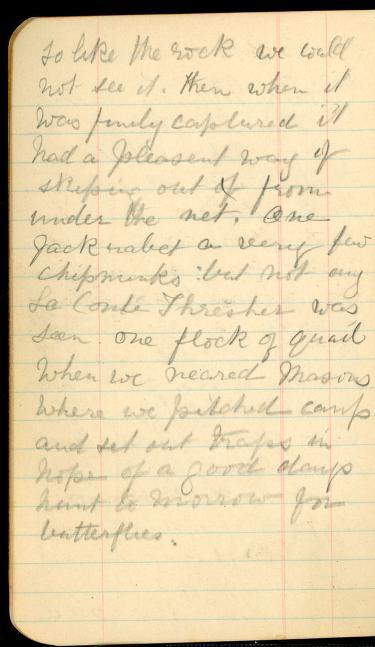 so like the rock we could
not see it. Then when it
was finily captured it
had a pleasent way of
skiping out of from
under the net. One
Jack rabet a verry few
chipmunks but not any
Le Conte Thresher was
seen one flock of quail
When we neared Masons
where we pitched camp
and set out traps in
hope of a good days
hunt to morrow for
butterflies.